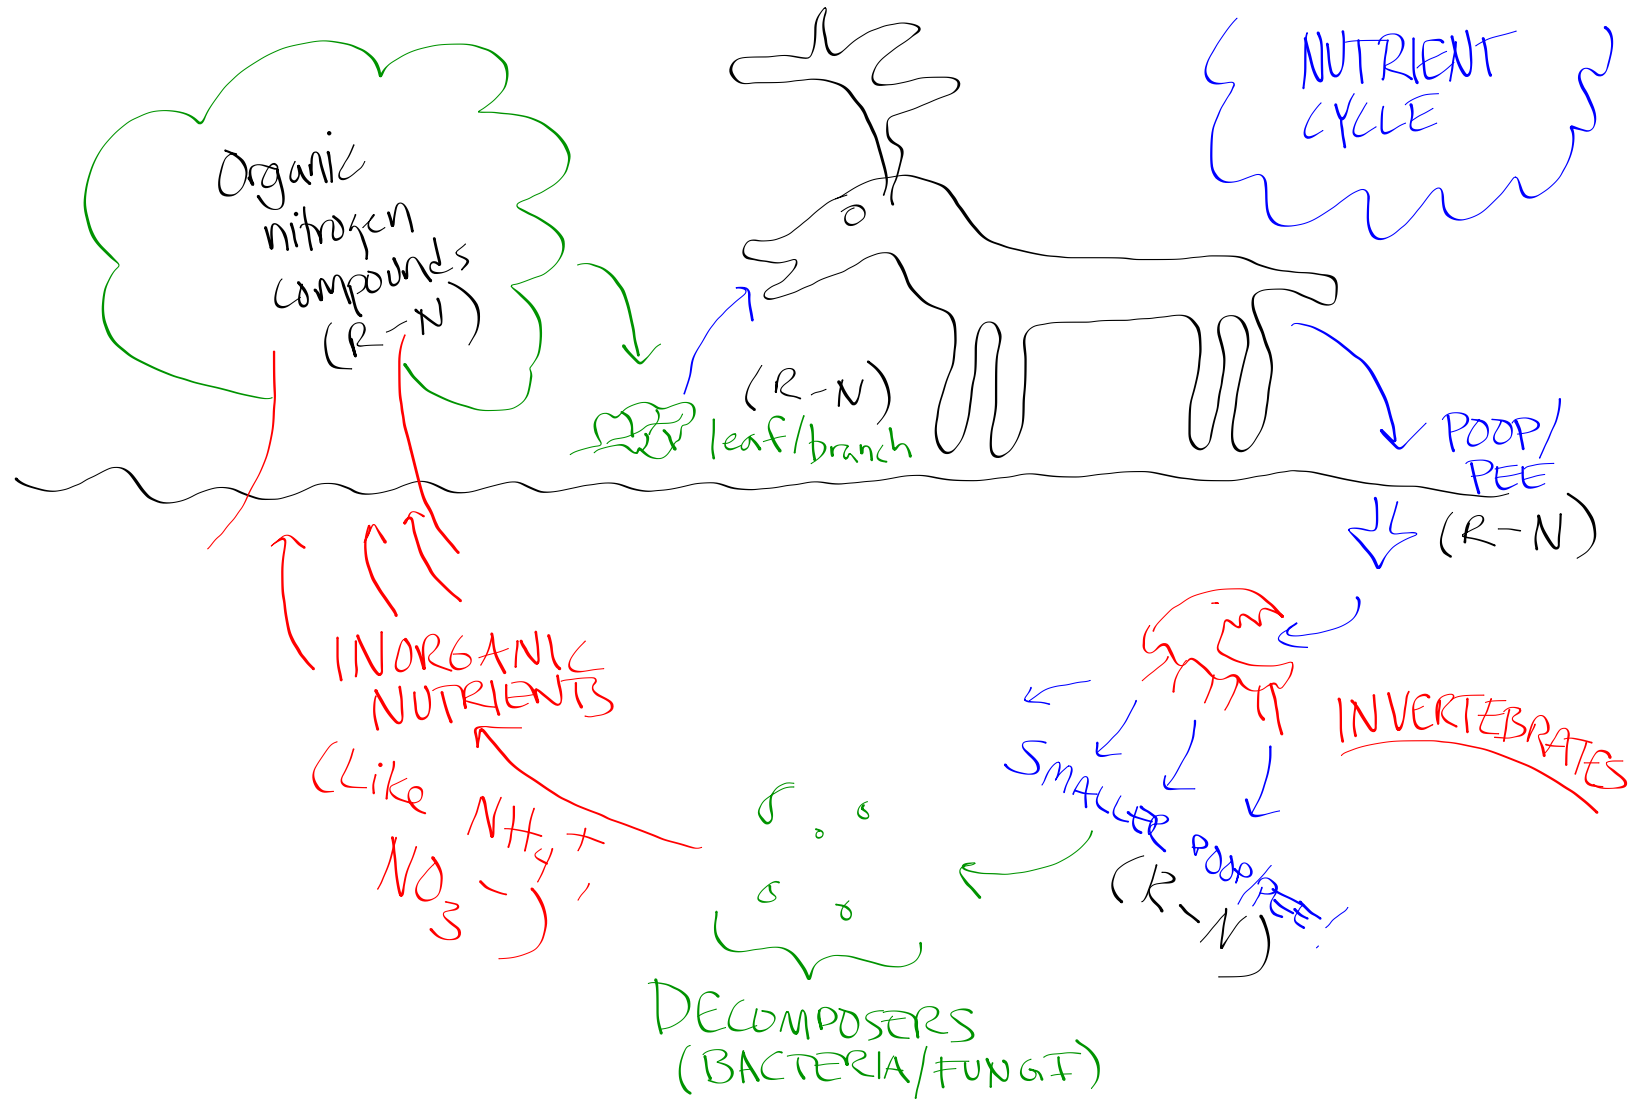 NUTRIENT
CYCLE
Organic
nitrogen
compounds
(R-N)
(R-N)
leaf/branch
POOP/
PEE
(R-N)
INVERTEBRATES
SMALLER POOP/PEE!
(R-N)
DECOMPOSERS
(BACTERIA/FUNGI)
INORGANIC
NUTRIENTS
(Like NH4+,
NO3-)